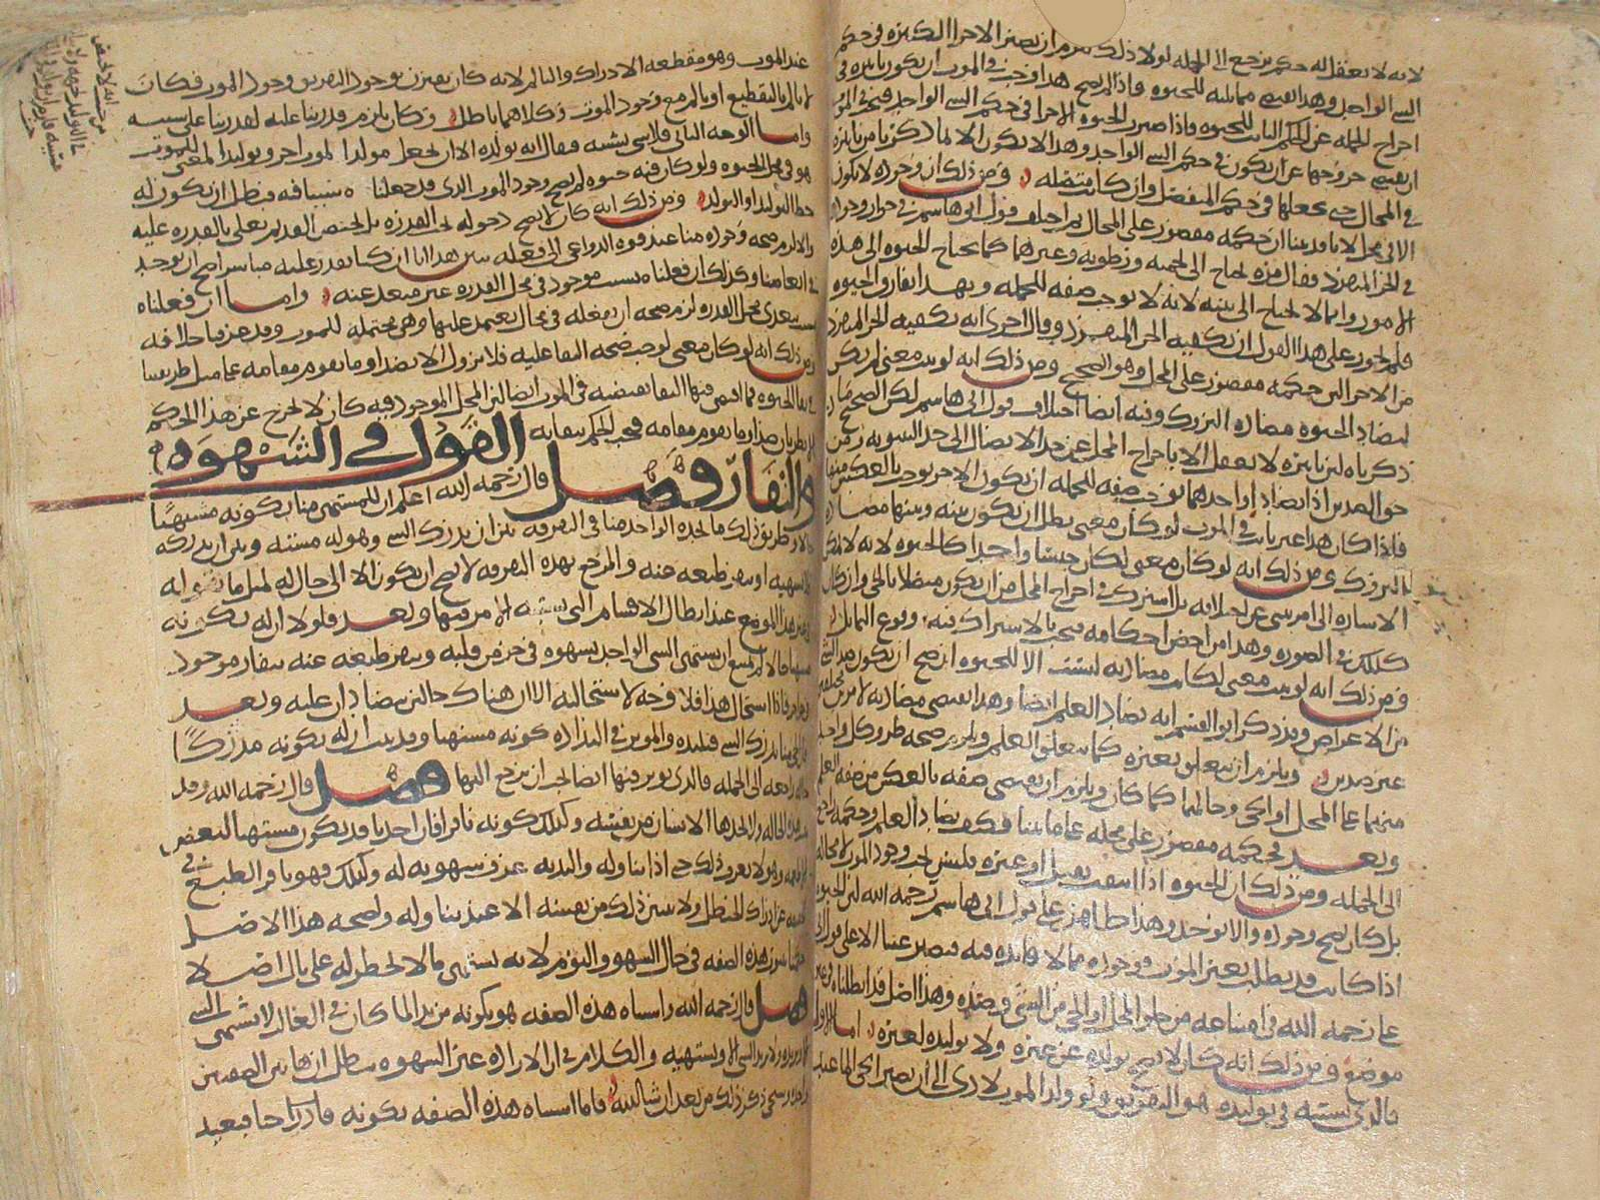 لانه لا يعقل له حكم يرجع الى الجمله لولا ذلك للزم ان يصير الاجزا الكثيره في حكم
الشي الواحد وهذا القسم مماثله للحيوه فاذا لم يصح هذا وجب في الموت ان يكون تاثيره في
اخراج الجمله عن الحكم الثابت للحيوه فاذا صيرت الحيوه الاجزا في حكم الشي الواحد
ان يقتضي خروجها عن ان يكون في حكم الشي الواحد وهذا لا يكون الا لما ذكرنا من تاثيره
في المحال حتى يجعلها في حكم المنفصل وان كانت متصله ومن ذلك ان وجوده لا يكون
الا في محل لانا قد بينا ان حكمه مقصور على المحال ثم اختلف قول ابي هاشم في جواز وجوده
في الجز المنفرد فقال مره يحتاج الى بنيه ورطوبه وغيرهما كما يحتاج الحيوه الى هذه
الامور وانما لا يحتاج الى بنيه لانه لا يوجب صفه للجمله وبهذا يفارق الحيوه
فلم يجوز على هذا القول ان يكفيه الجز المنفرد وقال اخرى انه يكفيه الجز المنفرد
من الاجزا لان حكمه مقصور على المحل وهو الصحيح ومن ذلك انه لو ثبت معنى لم يكن
ليضاد الحيوه مضاده التروك وفيه ايضا اختلاف قول ابي هاشم لكن الصحيح ما
ذكرناه لان تاثيره لا يعقل الا باخراج المحل عن حد الاتصال الى حد
حق الضدين اذا تضادا واحدهما يوجب صفه للجمله ان يكون الاخر يوجب بالعكس منها
فاذا كان هذا غير ثابت في الموت لو كان معنى بطل ان يكون بينه وبينها مضاده
التروك ومن ذلك انه لو كان معنى لكان جنسا واحدا كالحيوه لانه لا يمكن
الاشاره الى امر ينبي عن اختلافه بل اشترك في اخراج المحل من ان يكون متصلا بالحي وان كان
كذلك في الصوره وهذا من اخص احكامه فيجب بالاشتراك فيه وقوع التماثل
ومن ذلك انه لو ثبت معنى لكانت مضادته ليست الا للحيوه اذ صح ان يكون
من الاعراض وقد ذكر ابو القسم انه يضاد العلم ايضا وهذا يقتضي مضادته لامرين مختلفين
غير ضدين ويلزم ان يتعلق بغيره كما يتعلق العلم ويلزم صحه طرو كل واحد
منهما على المحل او الحي وحالهما كما كان ويلزم ان يقتضي صفه بالعكس من صفه العلم
وبعد فحكمه مقصور على محله على ما بينا فكيف يضاد العلم وحكمه راجع
الى الجمله ومن ذلك ان الحيوه اذا انتفت بقتل او غيره فليس يجب وجود الموت لا محاله
بل كان يصح وجوده والا يوجد وهذا ظاهر على قول ابي هاشم رحمه الله لان الحيوه
اذا كانت قد بطلت بغير الموت فوجوده مما لا فايده فيه فيصير عبثا الا على قول ابي
علي رحمه الله في امتناعه من خلو المحل او الحي من الشي وضده وهذا اصل قد ابطلناه في
موضعه ومن ذلك انه كان لا يصح توليده عن غيره ولا توليده لغيره اما الاول
فالذي يشتبه في توليده هو التفريق ولو ولد الموت لادى الى ان يصير الحي الما عند
عند الموت وهو مقطعه الادراك والتالم لانه كان يقترن بوجود التفريق وجود الموت فكان
لا يالم بالتقطيع او يالم مع وجود الموت وكلاهما باطل وكان يلزم قدرتنا عليه لقدرتنا على سببه
واما الوجه الثاني فلا شي يشتبه فيقال انه يولده الا ان يجعل مولدا لموت اخر وتوليد المعنى
هو في محل الحيوه ولو كان فيه حيوه لم يصح وجود الموت الذي قد جعلناه سببا فيه فبطل ان يكون له
حظ التوليد او التولد ومن ذلك انه كان لا يصح دخوله تحت القدره بل يختص القديم تعلى بالقدره عليه
والا لزم صحه وجوده منا عند قوه الدواعي الى فعله يبين هذا انا ان كنا نقدر عليه مباشرا صح ان يوجد
في ابعاضنا وكذلك ان فعلناه بسبب موجود في محل القدره غير متعد عنه واما ان فعلناه
بسبب يعدي محل القدره لزم صحه ان نفعله في محال نعتمد عليها وهي محتمله للموت وقد عرفنا خلافه
ومن ذلك انه لو كان معنى لوجب صحه البقا عليه فلا يزول الا بضد او ما يقوم مقامه على مثل طريقتنا
في بقا الحيوه فما اقتضى فيها البقا يقتضيه في الموت ايضا لان المحل الموجود فيه كان لا يخرج عن هذا الحكم
الا بطريان ضد او ما يقوم مقامه فيجب الحكم ببقايه
القول في الشهوه
والنفار فصل قال رحمه الله اعلم ان للمشتهي منا بكونه مشتهيا
حالا وطريق ذلك ما يجده الواحد منا في التفرقه بين ان يدرك الشي وهو له مشته وبين ان يدركه
لا يشتهيه او ينفر طبعه عنه والمرجع بهذه التفرقه لا يصح ان يكون الا الى حال له لمثل ما نقوله
في غير هذا الموضع عند ابطال الاقسام التي يشتبه الامر فيها وبعد فلولا ان له بكونه
مشتهيا حالا لم يمتنع ان يشتهي الشي الواحد بشهوه في جز من قلبه وينفر طبعه عنه بنفار موجود
في جز اخر فاذا استحال هذا فلا وجه لاستحالته الا ان هناك حالين يتضادان عليه وبعد
فالحي منا يدرك الشي فيلتذه والموثر في التذاذه كونه مشتهيا وقد ثبت ان له بكونه مدركا
حاله راجعه الى الجمله فالذي يوثر فيها ايضا يجب ان يرجع اليها فصل قال رحمه الله وقد
هذه الحاله ولا يجدها الانسان من نفسه وكذلك كونه نافرا فان احدنا قد يكون مشتهيا لبعض
الاطعمه وهو لا يعرف ذلك حتى اذا تناوله والتذ به عرف شهوته له وكذلك فهو نافر الطبع
عن ادراك الحنظل ولا يتبين ذلك من نفسه الا عند تناوله ولصحه هذا الاصل
هذه الصفه في حال السهو والنوم لانه يشتهي ما لا يخطر له على بال اصلا
فصل قال رحمه الله واشباه هذه الصفه هو بكونه مريدا لما كان في الغالب لا يشتهي الشي
الا ويريده ولا يريد الشي الا ويشتهيه والكلام في ان الاراده غير الشهوه يبطل ان هاتين الصفتين
واحده وسيجي ذكر ذلك من بعد ان شا الله فاما اشباه هذه الصفه بكونه قادرا حيا فبعيد